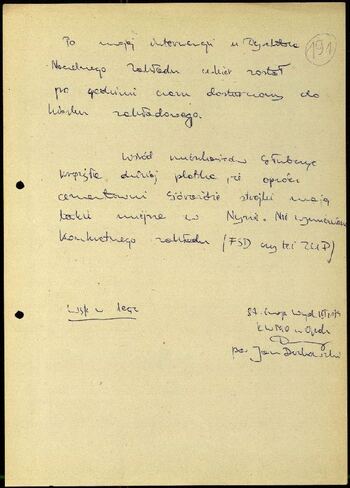 191
Po mojej interwencji u Dyrektora
Naczelnego zakładu cukier został
po godzinie czasu dostarczony do
kiosku zakładowego.
Wśród mieszkańców Głubczyc
krążyła dzisiaj plotka, iż oprócz
cementowni Górażdże strajki mają
także miejsce w Nysie. Nie wymieniano
konkretnego zakładu (FSD czy też ZUP)
W
KWMO w Opolu
Jan